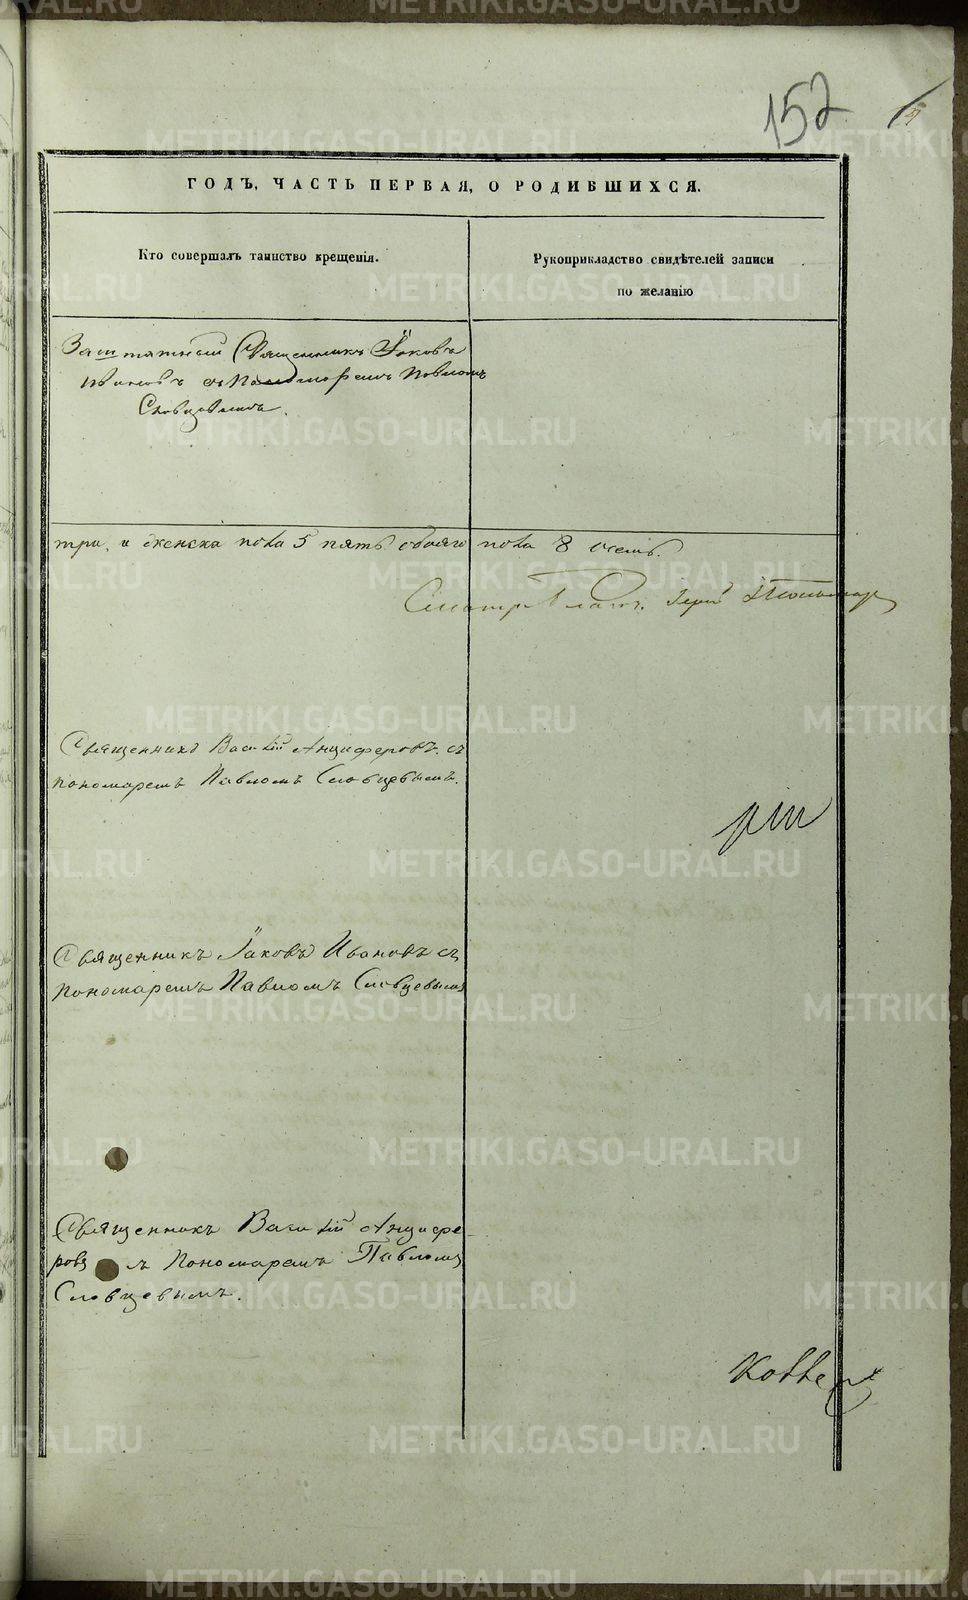 152
ГОДЪ, ЧАСТЬ ПЕРВАЯ, О РОДИВШИХСЯ.
Кто совершалъ таинство крещенія.
Рукоприкладство свидѣтелей записи
по желанію
Заштатный Священникъ Іаковъ
Ивановъ съ Пономаремъ Павломъ
Словцовымъ.
три, и женска пола 5 пять обоего пола 8 осемь.
Священникъ Василій Анциферовъ съ
пономаремъ Павломъ Словцевымъ.
Священникъ Іаковъ Ивановъ съ
Пономаремъ Павломъ Словцевымъ
Священникъ Василій Анцифе-
ровъ съ Пономаремъ Павломъ
Словцевымъ.
METRIKI.GASO-URAL.RU